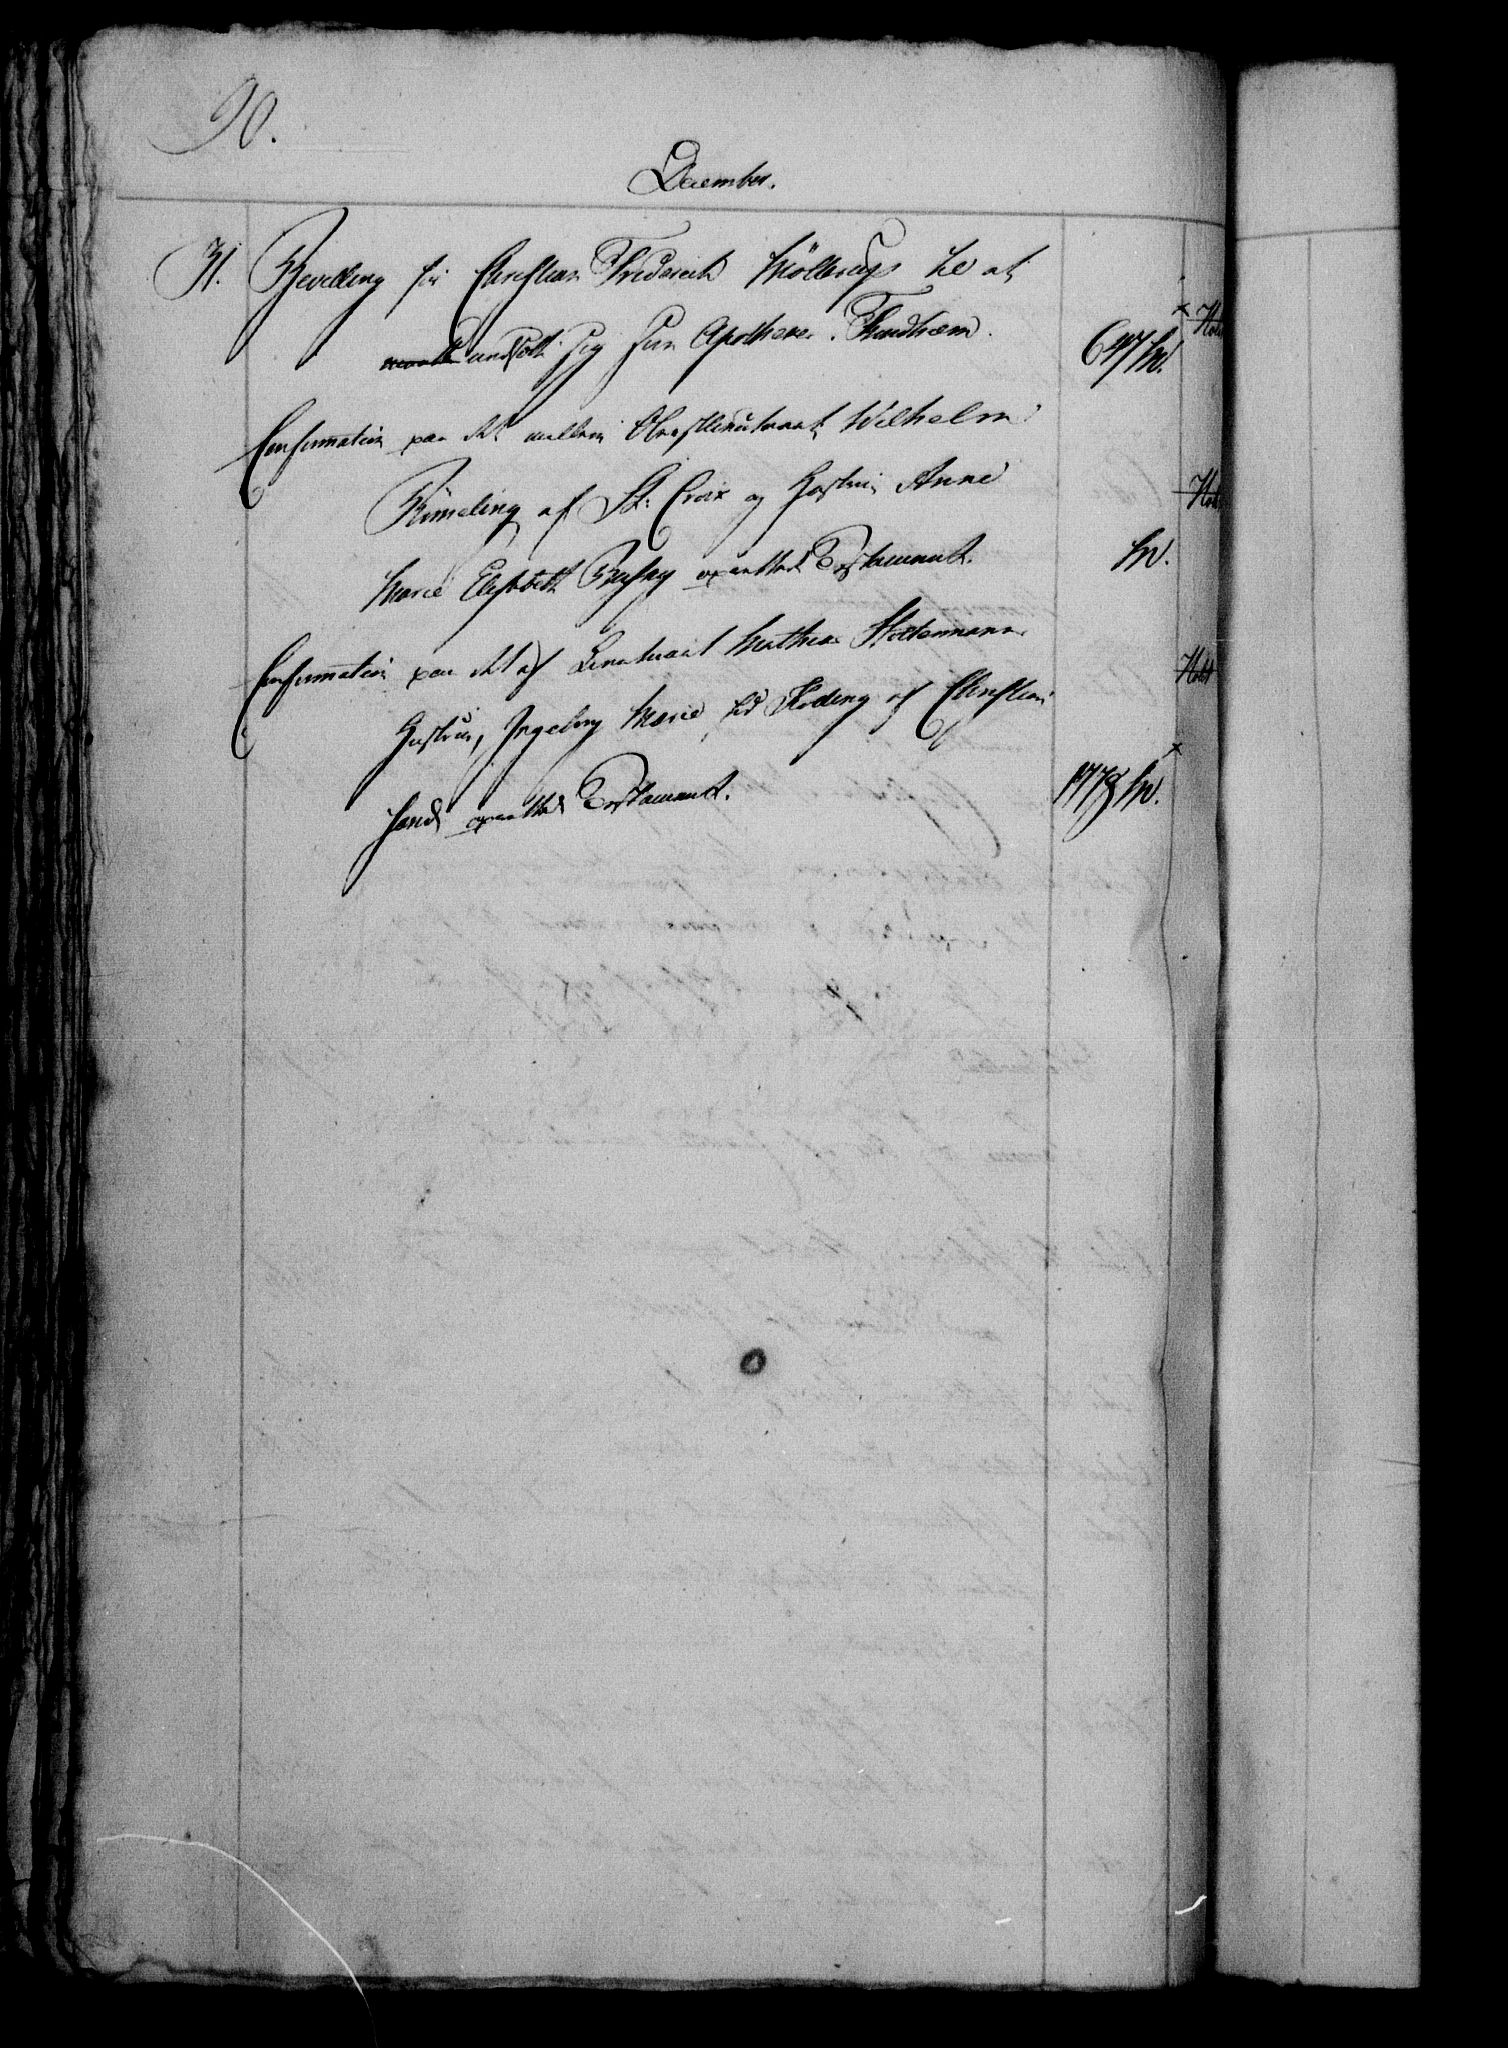 90.
December.
31. Bevilling for Christian Friderich Möllerup til at
nedsætte sig som Apotheker i Trondhiem. 647 M.
Confirmation paa det mellem Obrestlieutenant Wilhelm
Römeling af St: Croix og Hustrue Anne
Marie Elisabeth oprettede Testament. M.
Confirmation paa det af Lieutenant Mathias Stoltenmann
Hustrue, Ingeborg Marie, fød af Christian
Sand oprettede Testament. 1778 M.